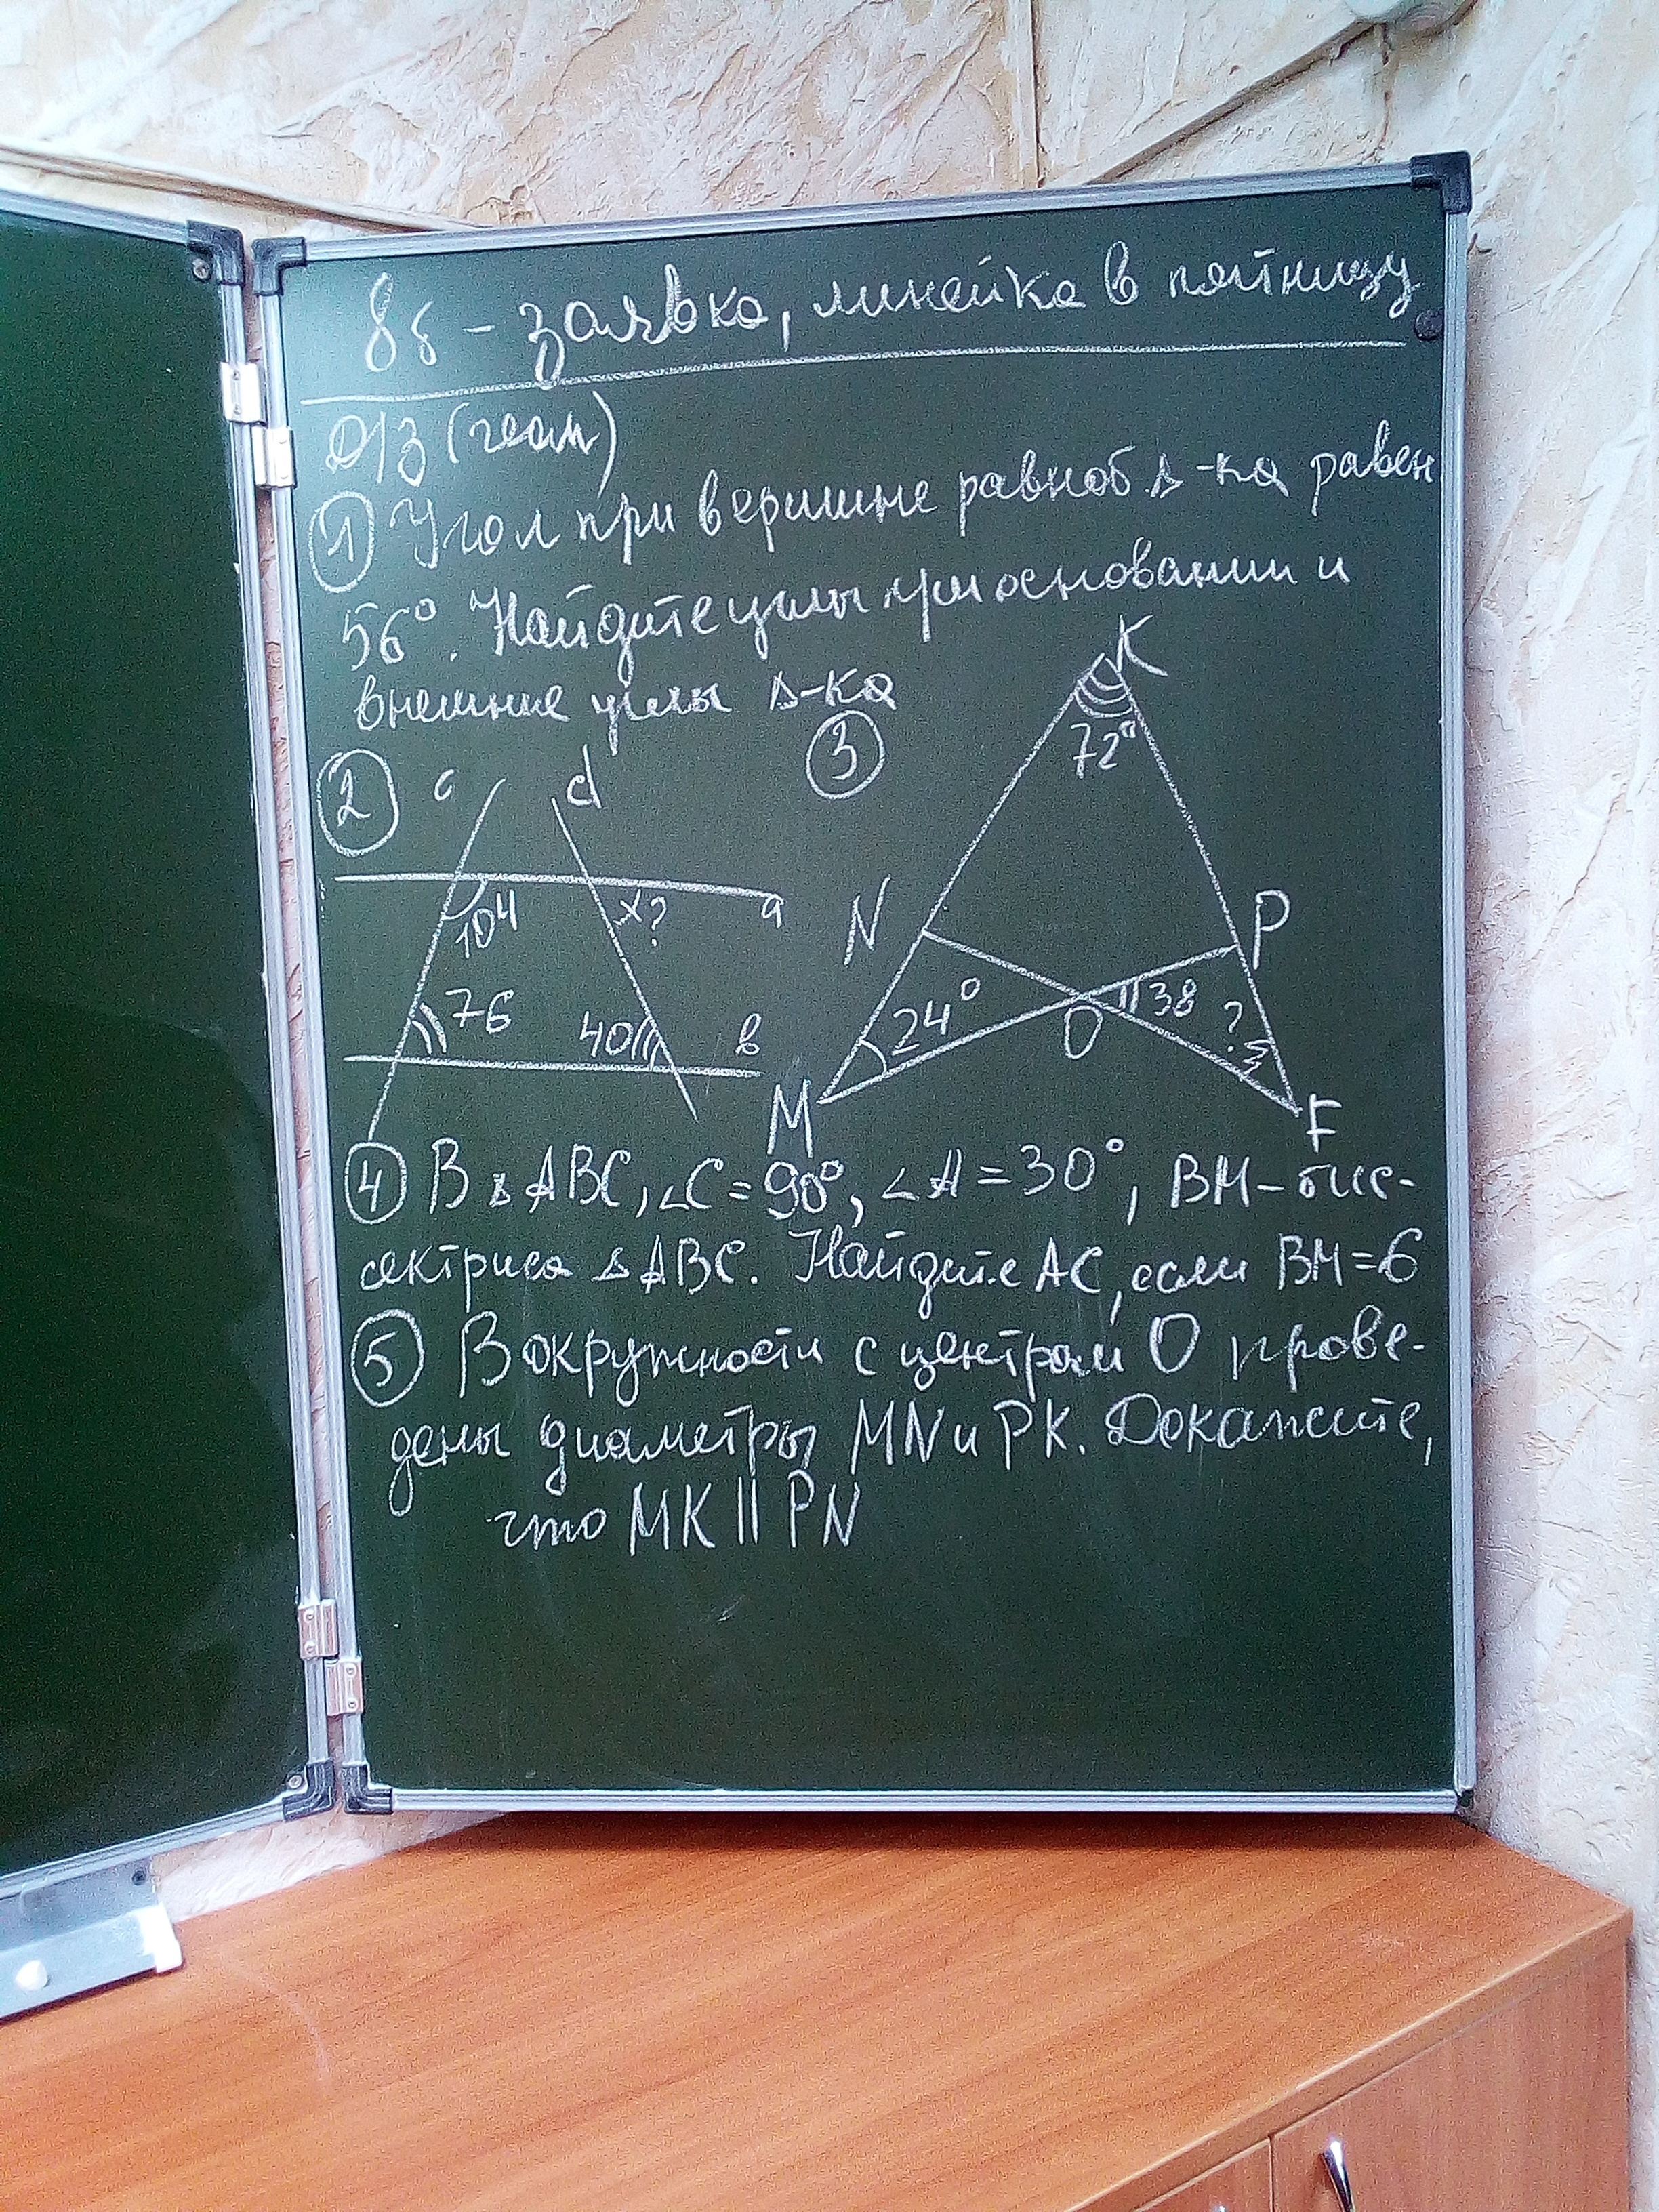 8б – заявка, линейка в пятницу
Д/З (геом)
① Угол при вершине равноб. Δ-ка равен
56°. Найдите углы при основании и
внешние углы Δ-ка
② c d
104 x? a
76 40 в
③ K
72°
N P
24° O 38 ?
M F
④ В Δ ABC, ∠C = 90°, ∠A = 30°, BM – бис-
сектриса Δ ABC. Найдите AC, если BM = 6
⑤ В окружности с центром O прове-
дены диаметры MN и PK. Докажите,
что MK || PN